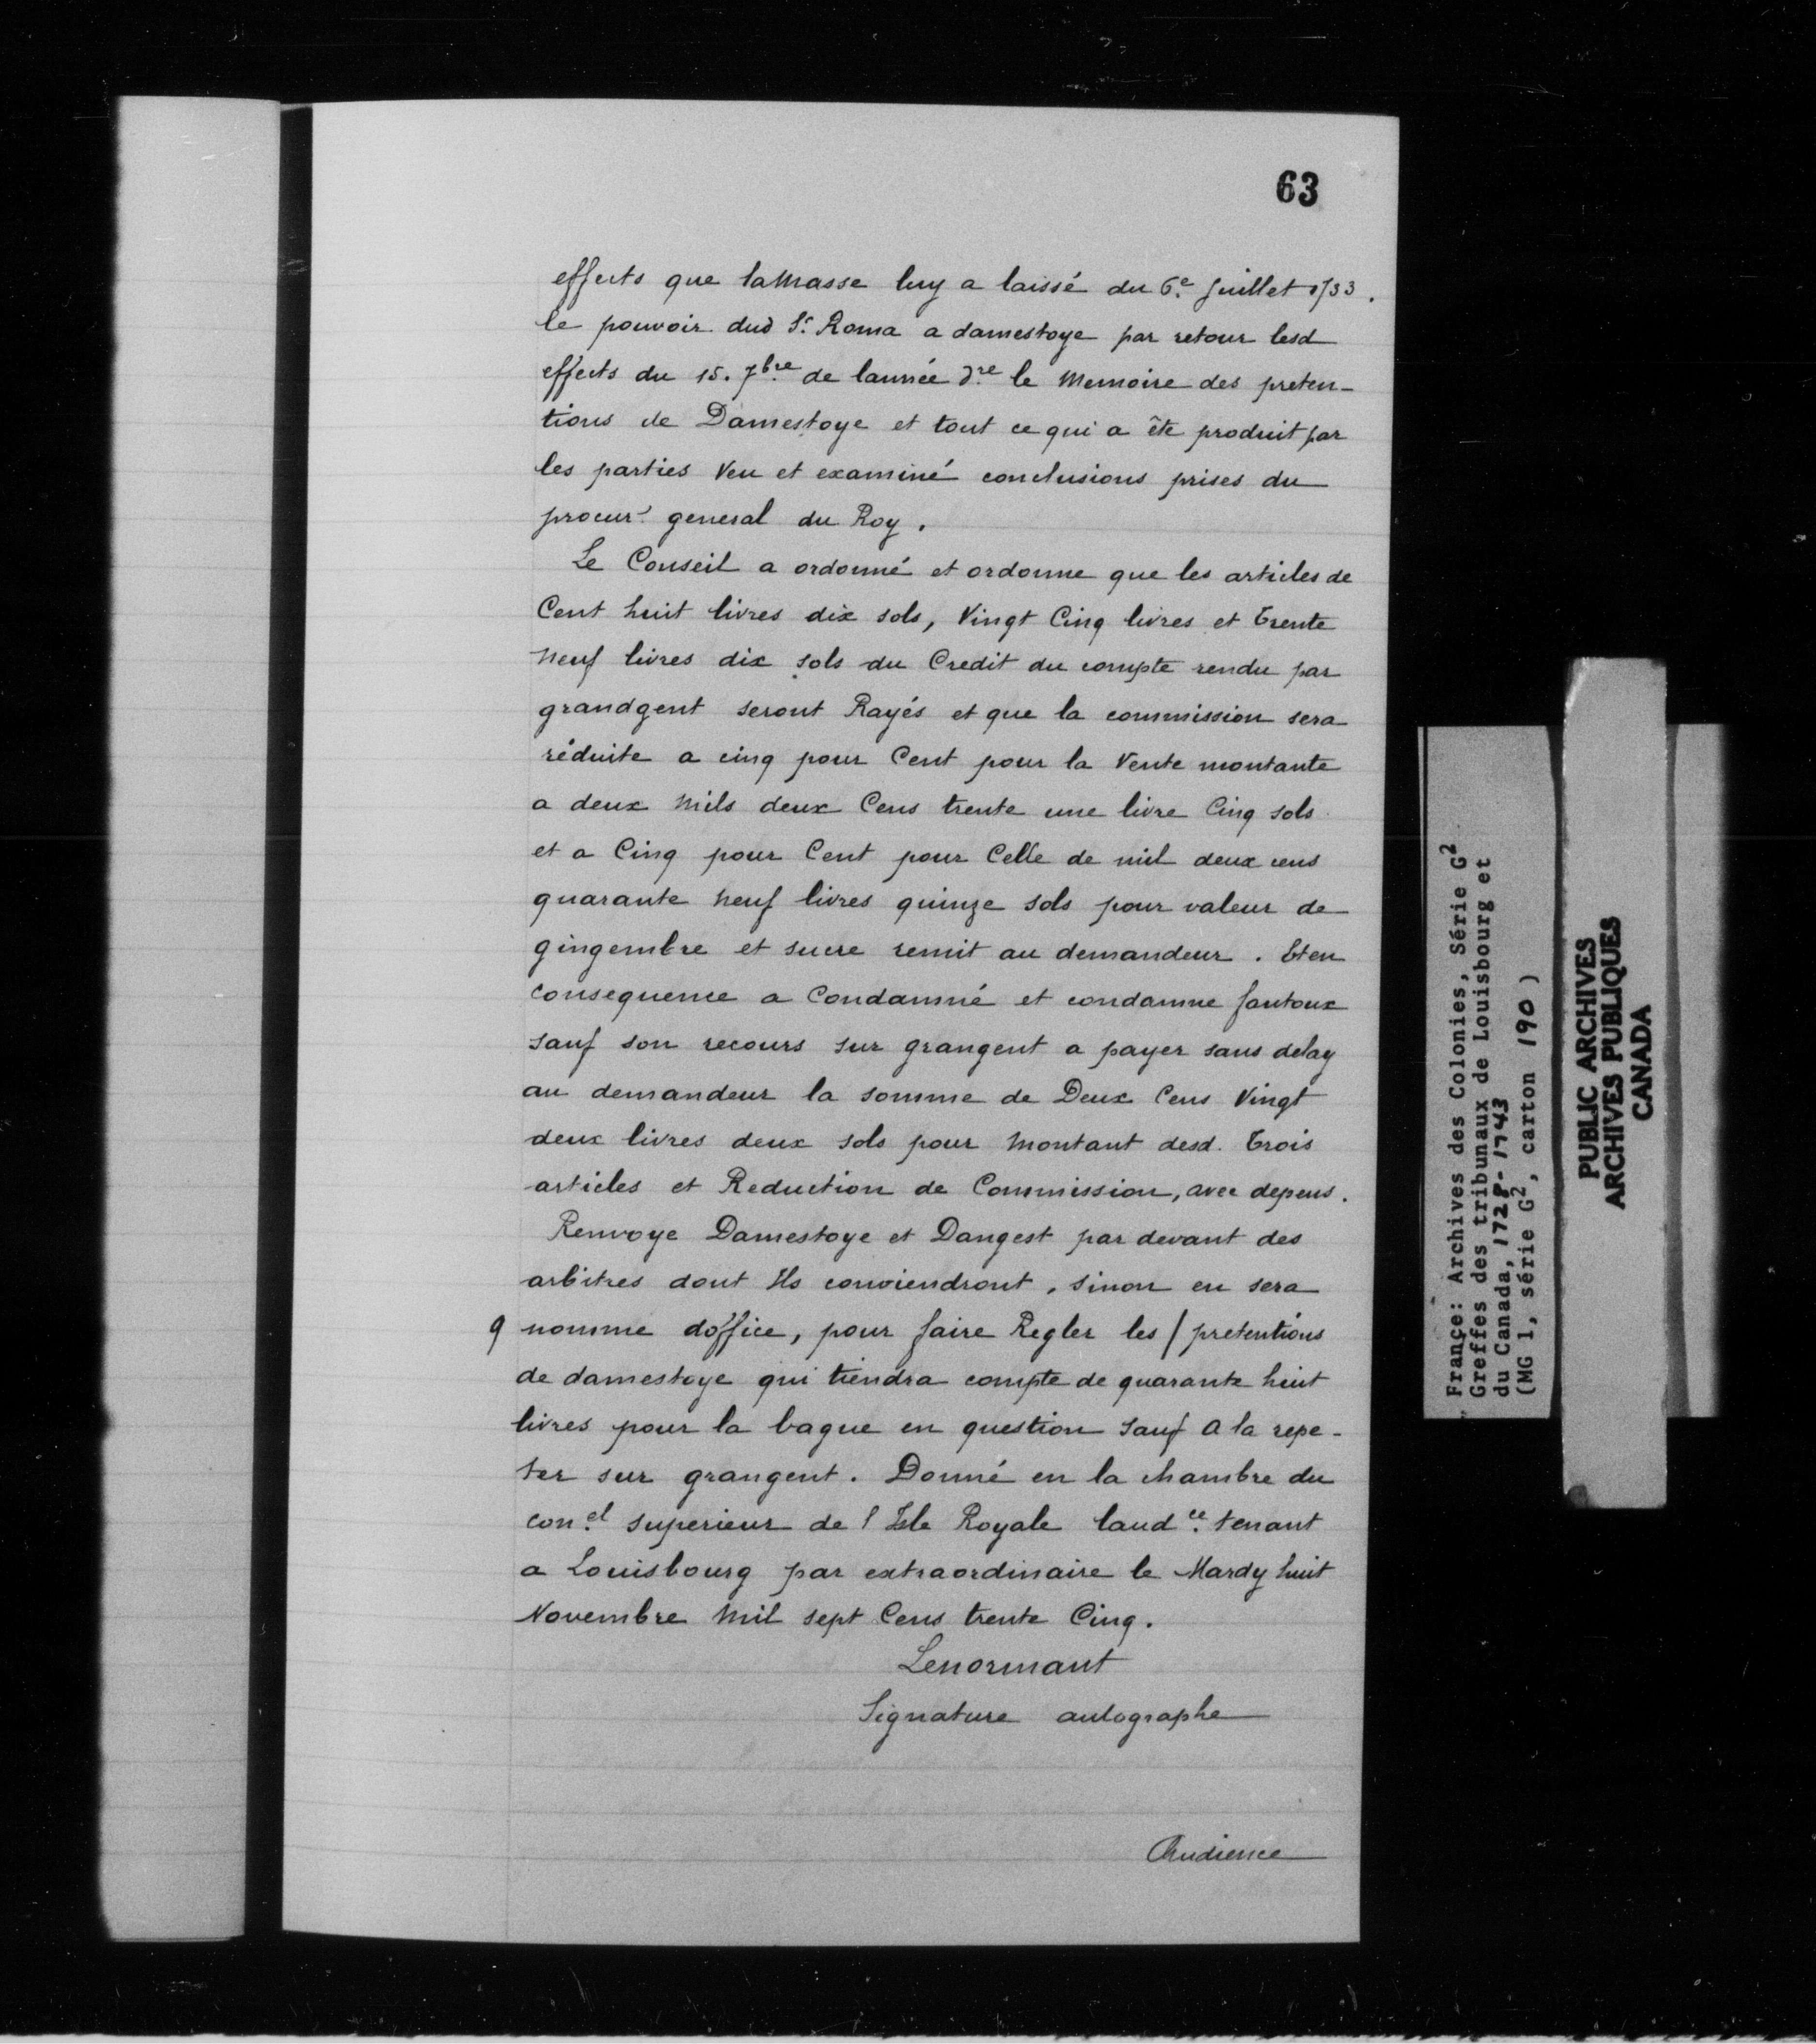 63
effects que laMasse luy a laissé du 6.e Juillet 1733.
le pouvoir dud S.r Roma a damestoye par retour lesd
effects du 15. 7bre de lannée d.re le Memoire des preten-
tions de Damestoye et tout ce qui a êté produit par
les parties Veu et examiné conclusions prises du
procur.r general du Roy.
Le Conseil a ordonné et ordonne que les articles de
Cent huit livres dix sols, Vingt Cinq livres et trente
neuf livres dix sols du Credit du compte rendu par
grandgent seront Rayés et que la commission sera
réduite a cinq pour Cent pour la Vente montante
a deux mils deux Cens trente une livre Cinq sols
et a Cinq pour Cent pour Celle de mil deux cens
quarante neuf livres quinze sols pour valeur de
gingembre et sucre remit au demandeur. Et en
consequence a Condamné et condamne fautoux
sauf son recours sur grangent a payer sans delay
au demandeur la somme de Deux Cens Vingt
deux livres deux sols pour Montant desd. trois
articles et Reduction de Commission, avec depens.
Renvoye Damestoye et Dangest par devant des
arbitres dont Ils conviendront, sinon en sera
9 nomme doffice, pour faire Regler les / pretentions
de damestoye qui tiendra compte de quarante huit
livres pour la bague en question Sauf a la repe-
ter sur grangent. Donné en la chambre du
con.el superieur de l Isle Royale laud.ce tenant
a Louisbourg par extraordinaire le Mardy huit
Novembre Mil sept Cens trente Cinq.
Lenormant
Signature autographe
Audience
France: Archives des Colonies, Série G2
Greffes des tribunaux de Louisbourg et
du Canada, 1728-1743
(MG 1, série G2, carton 190)
PUBLIC ARCHIVES
ARCHIVES PUBLIQUES
CANADA